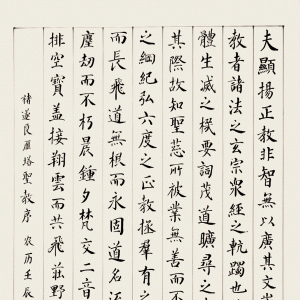 夫顯揚正教非智無以廣其文
教者諸法之玄宗衆經之軌躅也
體生滅之機要詞茂道曠尋之
其際故知聖慈所被業無善而不
之綱紀弘六度之正教拯羣有之
而長飛道無根而永固道名流
塵劫而不朽晨鍾夕梵交二音
排空寶蓋接翔雲而共飛莊野
褚遂良雁塔聖教序 农历壬辰